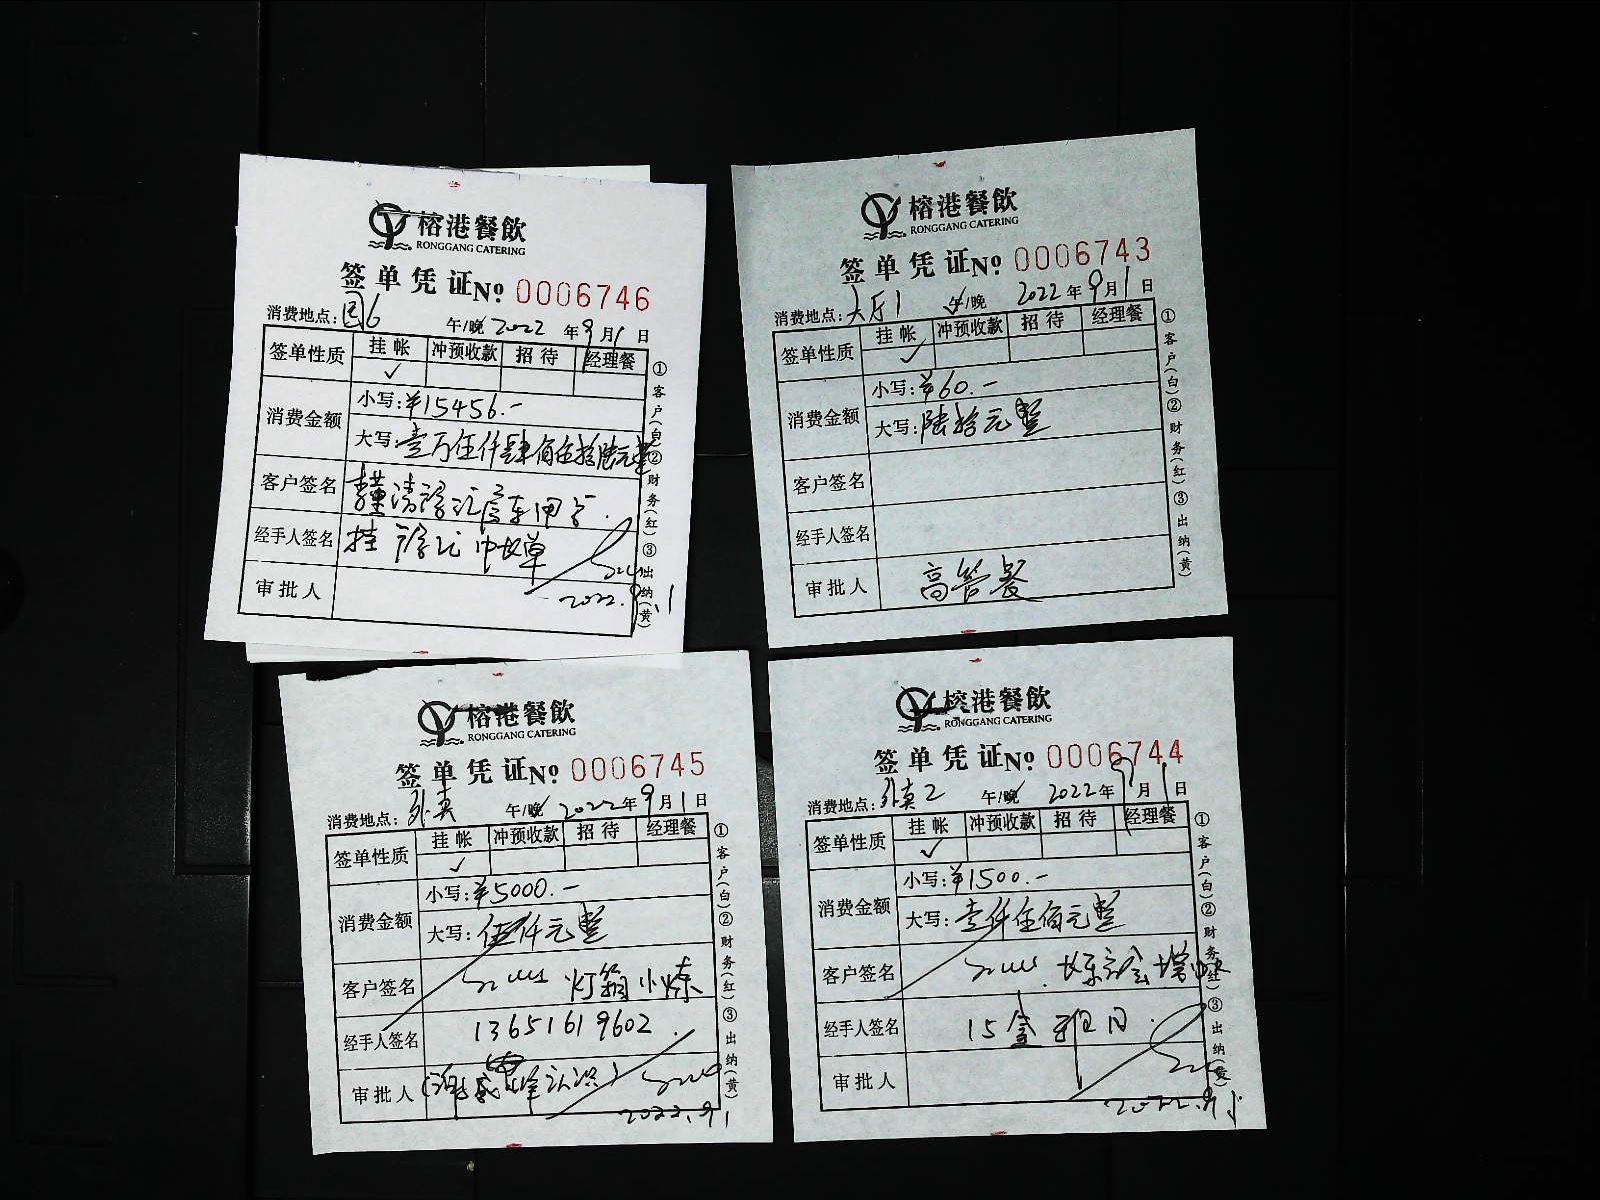 榕港餐飲
RONGGANG CATERING
签单凭证 Nº 0006746
消费地点: 国6 午/晚 2022年9月1日
签单性质 挂帐 冲预收款 招待 经理餐
✓
消费金额 小写:¥15456.-
大写:壹万伍仟肆佰伍拾陆元整
客户签名
经手人签名 挂
审批人
2022.9.1
①客户(白)②财务(红)③出纳(黄)
榕港餐飲
RONGGANG CATERING
签单凭证 Nº 0006743
消费地点: 大厅1 午/晚 2022年9月1日
签单性质 挂帐 冲预收款 招待 经理餐
✓
消费金额 小写:¥60.-
大写:陆拾元整
客户签名
经手人签名
审批人 高管餐
①客户(白)②财务(红)③出纳(黄)
榕港餐飲
RONGGANG CATERING
签单凭证 Nº 0006745
消费地点: 外卖 午/晚 2022年9月1日
签单性质 挂帐 冲预收款 招待 经理餐
✓
消费金额 小写:¥5000.-
大写:伍仟元整
客户签名 灯箱小
经手人签名 13651619602.
审批人
2022.9.1
①客户(白)②财务(红)③出纳(黄)
榕港餐飲
RONGGANG CATERING
签单凭证 Nº 0006744
消费地点: 外卖2 午/晚 2022年9月1日
签单性质 挂帐 冲预收款 招待 经理餐
✓
消费金额 小写:¥1500.-
大写:壹仟伍佰元整
客户签名
经手人签名 15盒
审批人
2022.9.1
①客户(白)②财务(红)③出纳(黄)